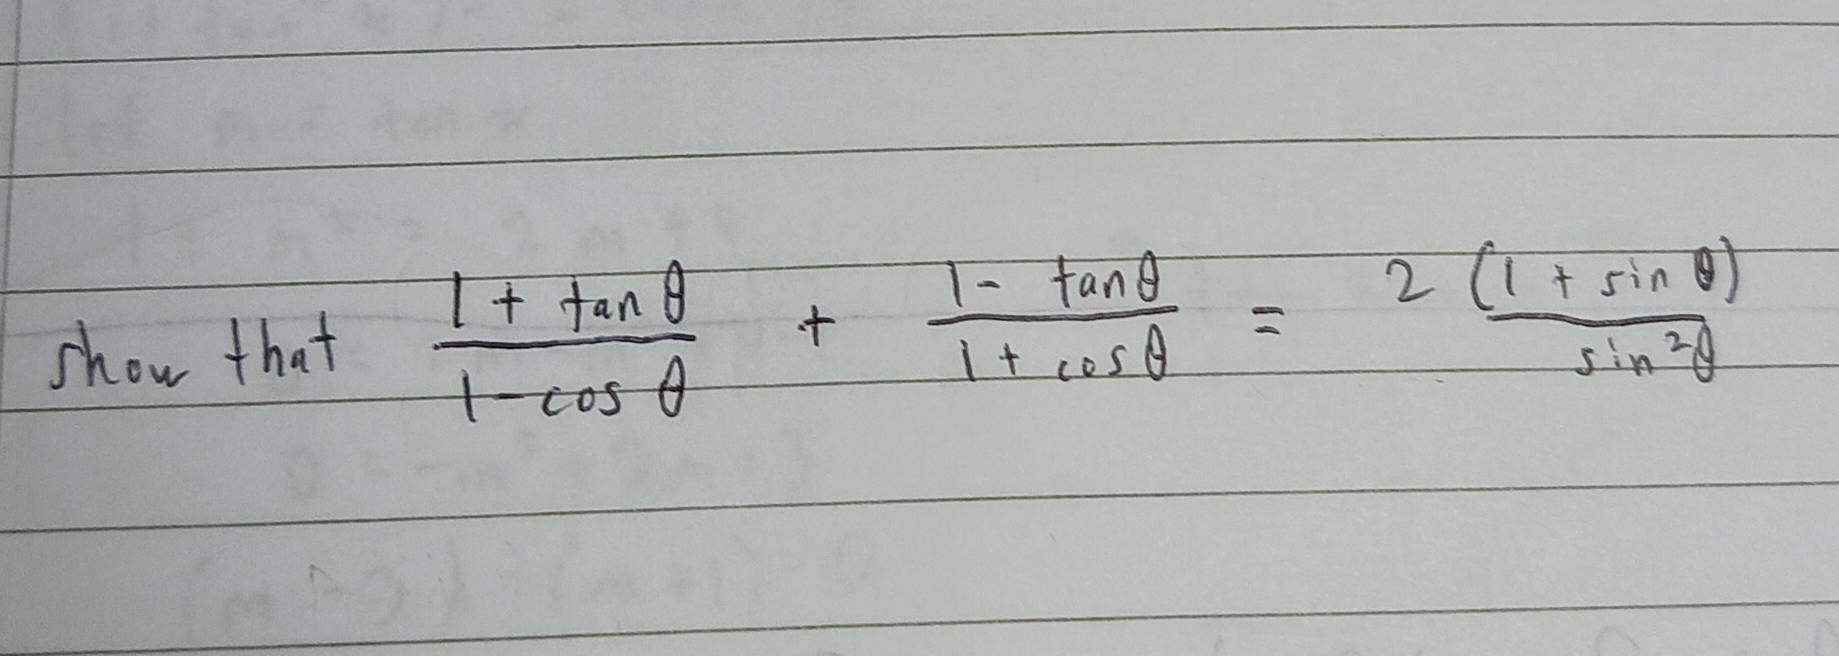 show that \frac{1 + tan θ}{1 - cos θ} + \frac{1 - tan θ}{1 + cos θ} = \frac{2 (1 + sin θ)}{sin²θ}